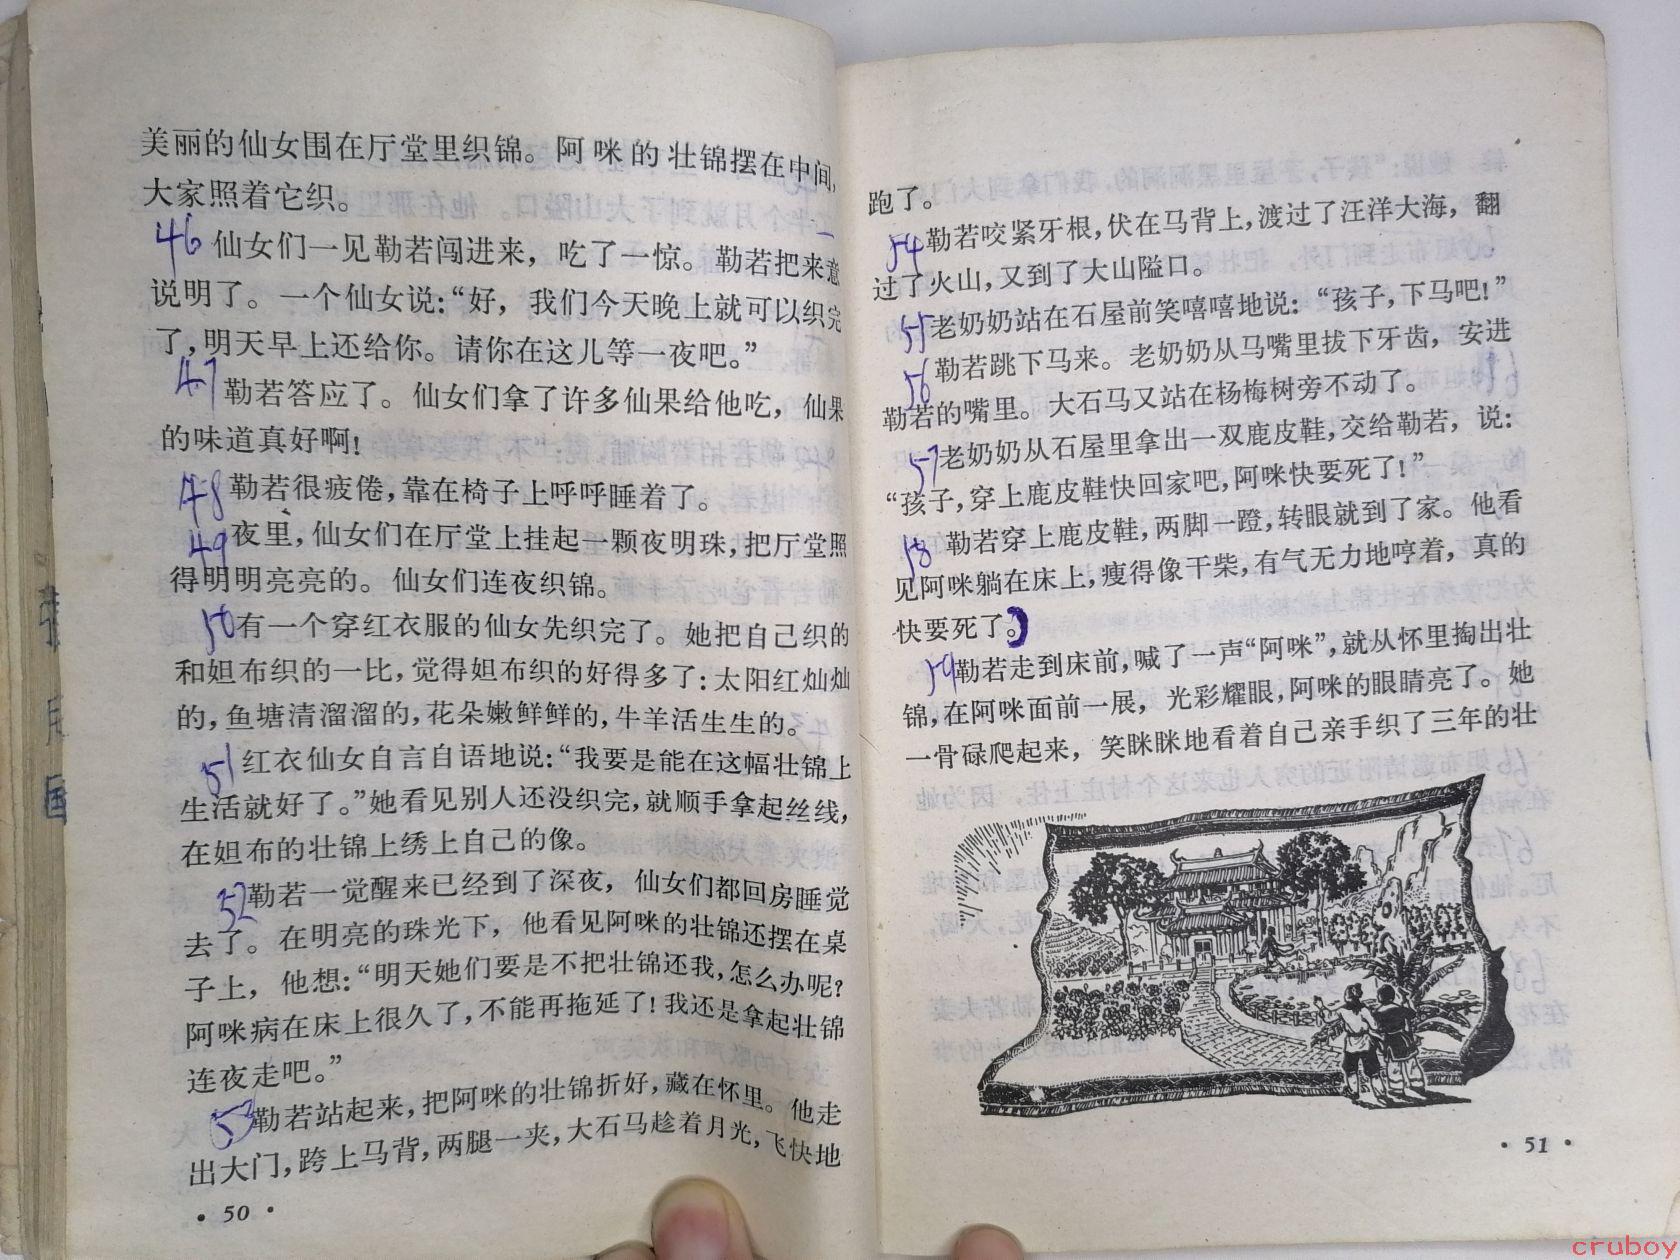 美丽的仙女围在厅堂里织锦。阿咪的壮锦摆在中间,
大家照着它织。
46 仙女们一见勒若闯进来，吃了一惊。勒若把来意
说明了。一个仙女说:“好，我们今天晚上就可以织完
了,明天早上还给你。请你在这儿等一夜吧。”
47 勒若答应了。仙女们拿了许多仙果给他吃，仙果
的味道真好啊!
48 勒若很疲倦,靠在椅子上呼呼睡着了。
49 夜里,仙女们在厅堂上挂起一颗夜明珠,把厅堂照
得明明亮亮的。仙女们连夜织锦。
50 有一个穿红衣服的仙女先织完了。她把自己织的
和妲布织的一比,觉得妲布织的好得多了:太阳红灿灿
的,鱼塘清溜溜的,花朵嫩鲜鲜的,牛羊活生生的。
51 红衣仙女自言自语地说:“我要是能在这幅壮锦上
生活就好了。”她看见别人还没织完,就顺手拿起丝线,
在妲布的壮锦上绣上自己的像。
52 勒若一觉醒来已经到了深夜，仙女们都回房睡觉
去了。在明亮的珠光下，他看见阿咪的壮锦还摆在桌
子上，他想:“明天她们要是不把壮锦还我,怎么办呢?
阿咪病在床上很久了,不能再拖延了!我还是拿起壮锦
连夜走吧。”
53 勒若站起来,把阿咪的壮锦折好,藏在怀里。他走
出大门,跨上马背,两腿一夹,大石马趁着月光,飞快地
• 50 •
跑了。
54 勒若咬紧牙根,伏在马背上,渡过了汪洋大海，翻
过了火山,又到了大山隘口。
55 老奶奶站在石屋前笑嘻嘻地说:“孩子,下马吧!”
56 勒若跳下马来。老奶奶从马嘴里拔下牙齿，安进
勒若的嘴里。大石马又站在杨梅树旁不动了。
57 老奶奶从石屋里拿出一双鹿皮鞋,交给勒若，说:
“孩子,穿上鹿皮鞋快回家吧,阿咪快要死了!”
58 勒若穿上鹿皮鞋,两脚一蹬,转眼就到了家。他看
见阿咪躺在床上,瘦得像干柴,有气无力地哼着，真的
快要死了。
59 勒若走到床前,喊了一声“阿咪”,就从怀里掏出壮
锦,在阿咪面前一展，光彩耀眼,阿咪的眼睛亮了。她
一骨碌爬起来，笑眯眯地看着自己亲手织了三年的壮
• 51 •
cruboy